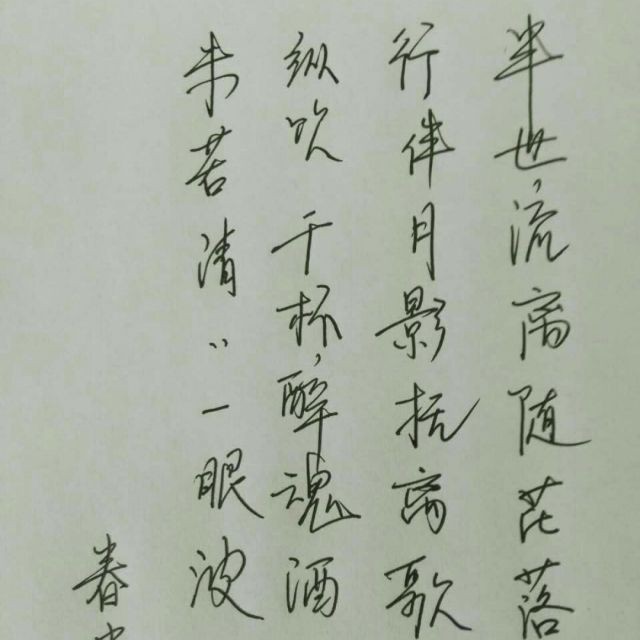 半世流离随花落
行伴月影抚离歌
纵吹千杯醉魂酒
未若清〃一眼波
春